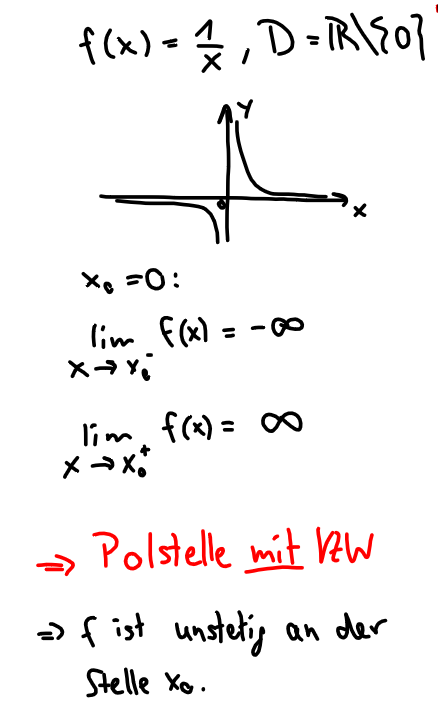 f(x) = 1/x , D = ℝ\{0}
y
0
x
x₀ = 0:
lim f(x) = -∞
x → x₀⁻
lim f(x) = ∞
x → x₀⁺
⇒ Polstelle mit VZW
⇒ f ist unstetig an der
Stelle x₀.